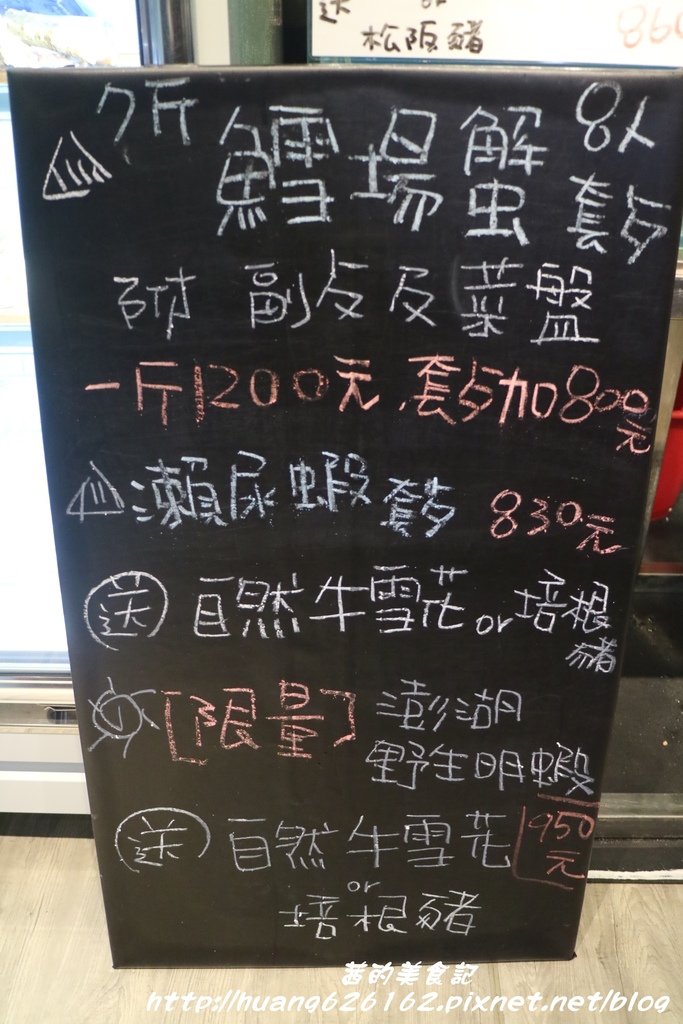 送 or
松阪豬 860
7斤 鱈場蟹 8人
套歺
附 副歺及菜盤
一斤1200元，套歺加800元
瀨尿蝦 套歺 830元
送 自然牛雪花 or 培根豬
[限量] 澎湖
野生明蝦
送 自然牛雪花 950元
or
培根豬
茜的美食記
http://huang626162.pixnet.net/blog